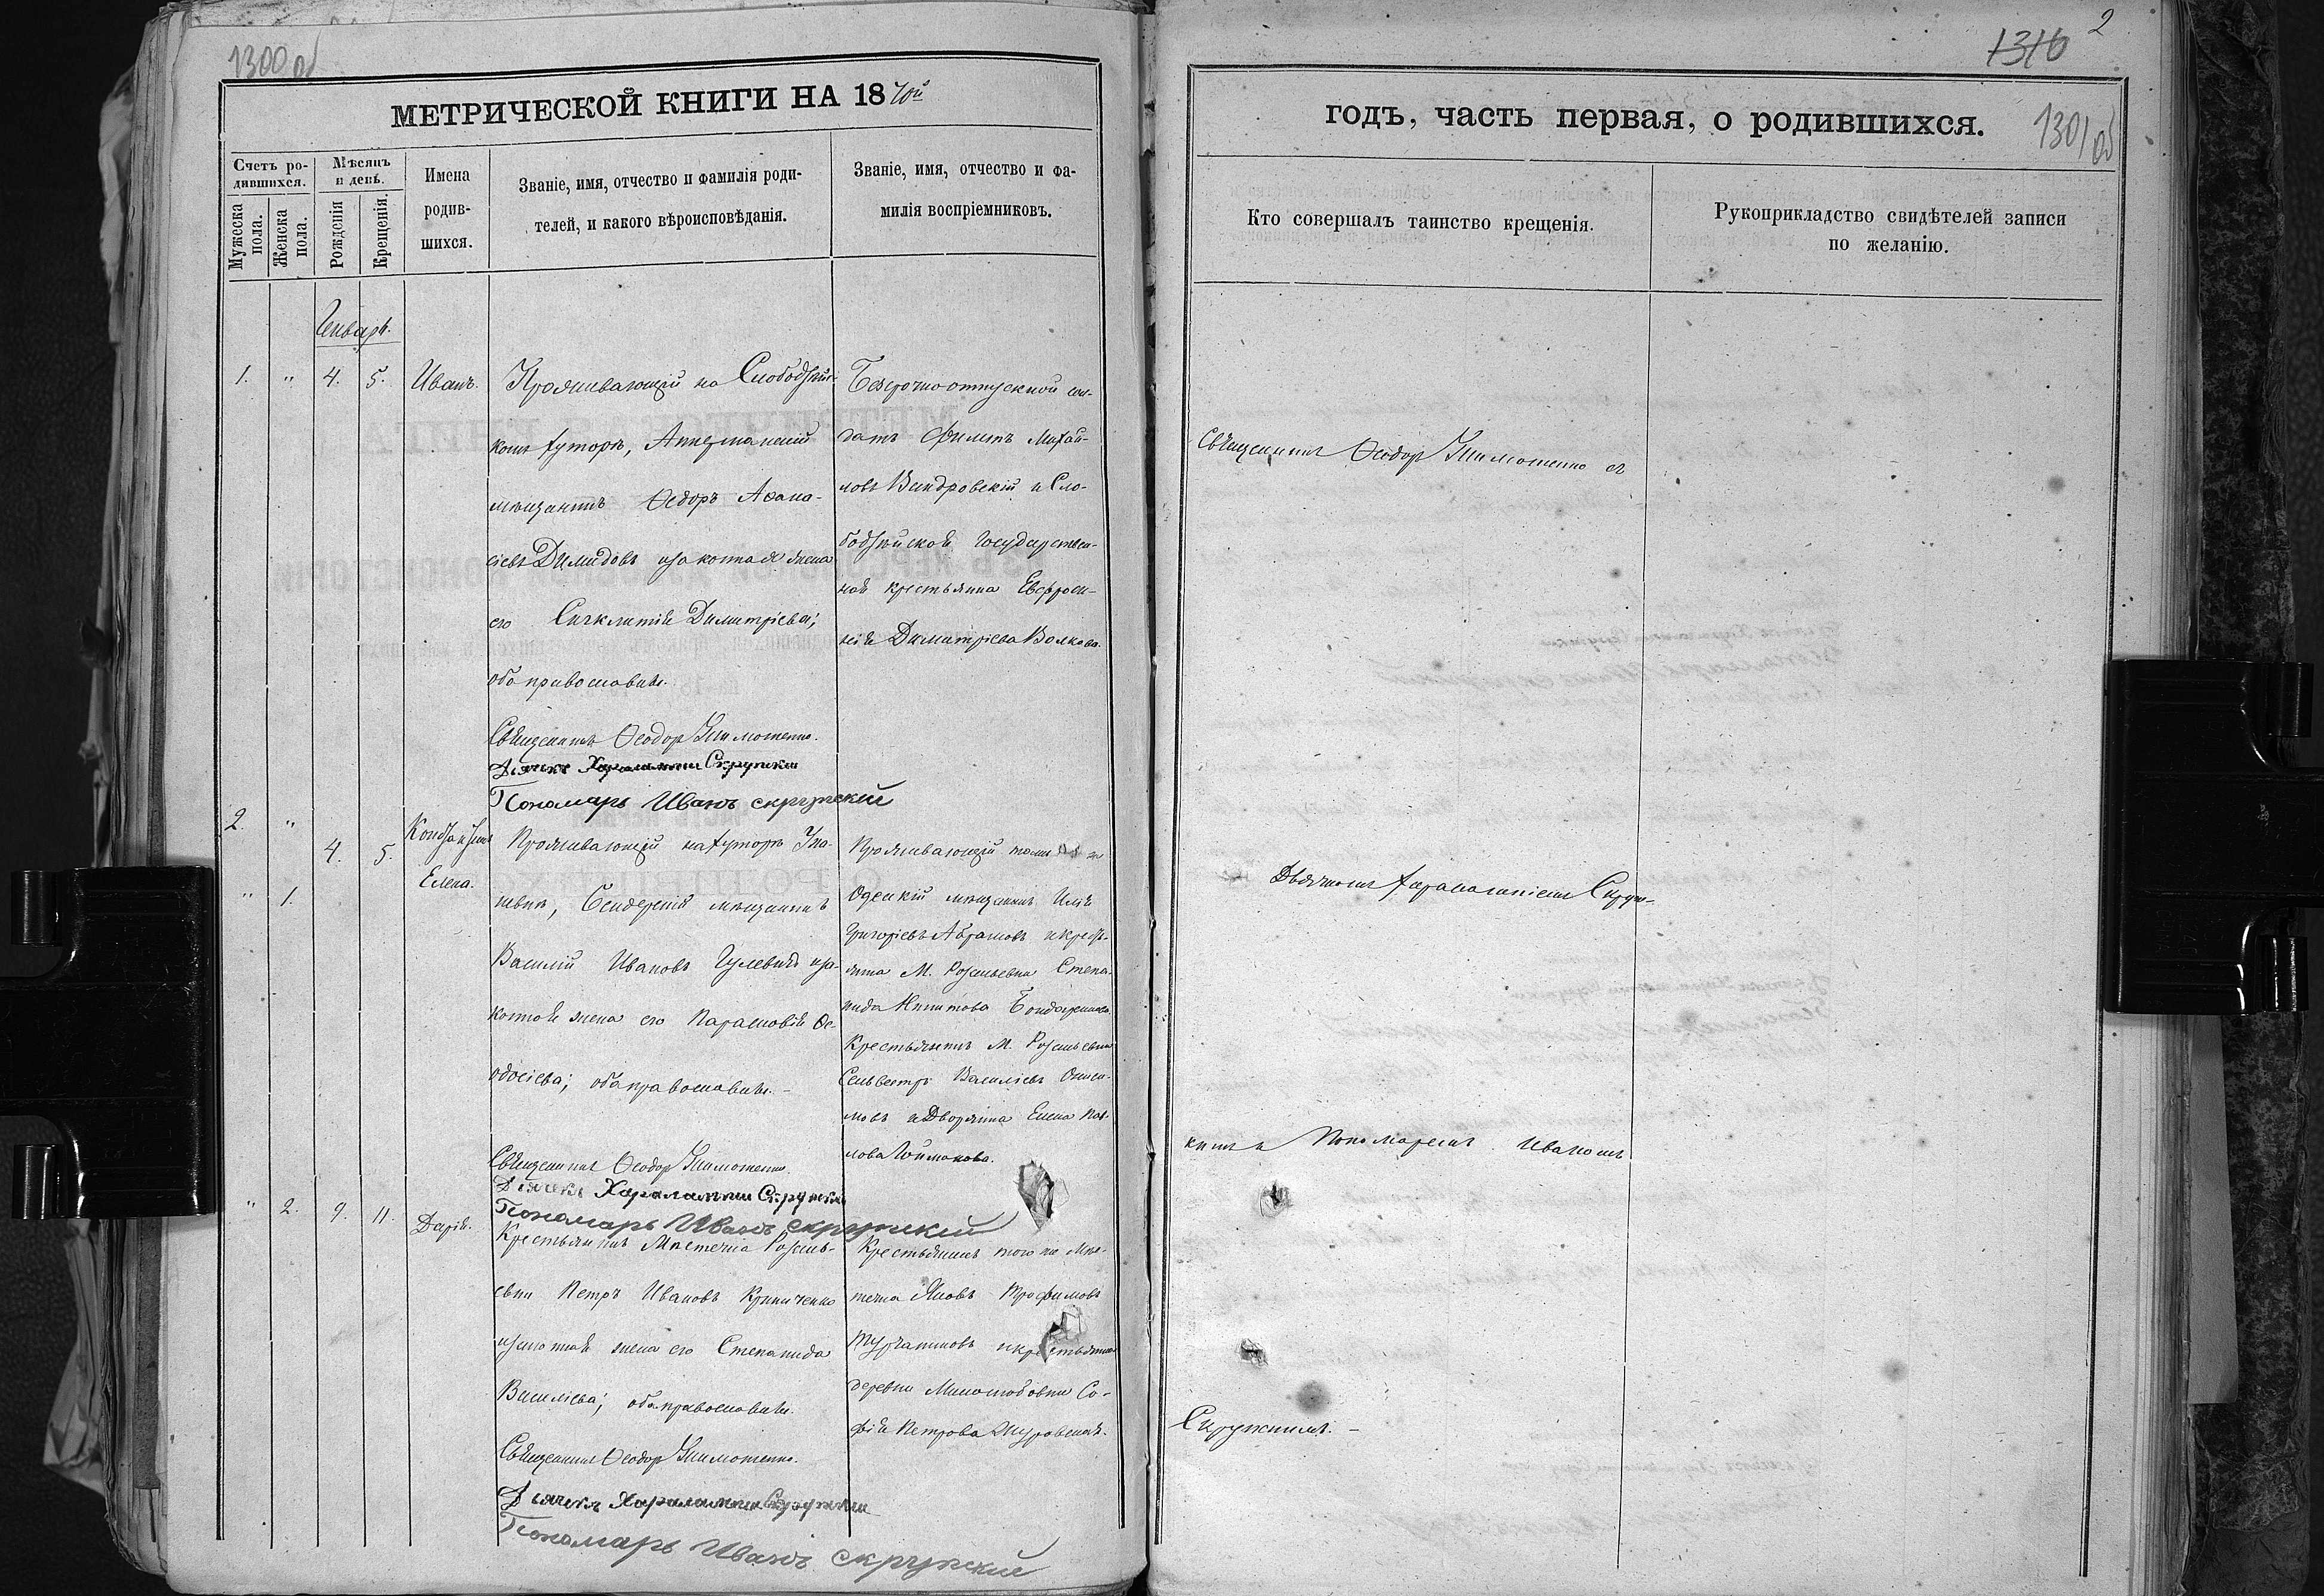 1300 об
МЕТРИЧЕСКОЙ КНИГИ НА 1870й
Счетъ ро-
дившихся.
Мужеска пола.
Женска пола.
Мѣсяцъ
и день.
Рожденія
Крещенія.
Имена
родив-
шихся.
Званіе, имя, отчество и фамилія роди-
телей, и какого вѣроисповѣданія.
Званіе, имя, отчество и фа-
милія воспріемниковъ.
Январь.
1. " 4. 5. Иванъ.
Проживающій на Слободзей-
комъ хуторѣ, Аккерманскій
мѣщанинъ Ѳедоръ Аѳана-
сіевъ Димидовъ и законная жена
его Синклитія Димитріева;
оба православные.
Священникъ Ѳеодор
Дьячекъ Харалампи Скружки
Пономарь Иванъ скружский
Безсрочноотпускной сол-
датъ Филипъ Михай-
ловъ Виндровскій и Сло-
бодзейской государствен-
ной крестьянка Евфроси-
нія Димитріева Волкова.
2. " 4. 5. Констанtинъ
" 1. Елена.
Проживающій на хуторѣ
Бендерскій мѣщанинъ
Василій Ивановъ Гулевичъ и за-
конная жена его Парасковія Ѳе-
одосіева; оба православные.
Священникъ Ѳеодор
Дьячекъ Харалампи Скружки
Пономарь Иванъ скружский
Проживающій тамъ же
Одесскій мѣщанинъ Илія
Григорьевъ Абрамовъ и кресть-
янка М. Степа-
нида Никитова Бондаренкова
Крестьянинъ М.
Сильвестръ ВасиліевъОниси-
мовъ и Дворянка Елена Пав-
лова
" 2. 9. 11. Дарія.
Крестьянинъ Мѣстечка
Петръ Ивановъ Криниченко
и законная жена его Степанида
Василіева; оба православные.
Священникъ Ѳеодор
Дьячекъ Харалампи Скружки
Пономарь Иванъ скружский
Крестьянинъ того же Мѣс-
течка Яковъ Трофимовъ
и крестьянка
деревни Со-
фія Петрова
2
1316
1301 об
годъ, часть первая, о родившихся.
Кто совершалъ таинство крещенія.
Рукоприкладство свидѣтелей записи
по желанію.
Священникъ Ѳеодор съ
Дьячкомъ Харалампіемъ Скруж-
кимъ и Пономаремъ Иваномъ
Скружкимъ.